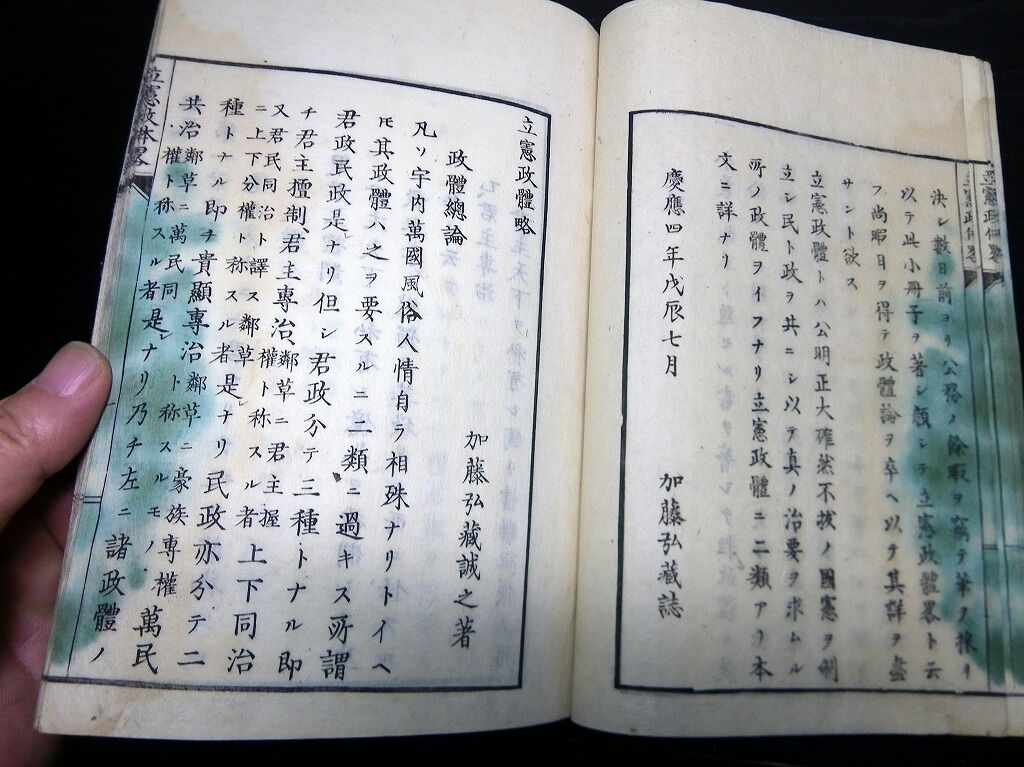 決シ數日前ヨリ公務ノ餘暇ヲ竊テ筆ヲ採リ
以テ此小冊子ヲ著シ顏シテ立憲政體畧ト云
フ尚暇日ヲ得テ政體論ヲ卒ヘ以テ其詳ヲ盡
サント欲ス
立憲政體トハ公明正大確然不拔ノ國憲ヲ制
立シ民ト政ヲ共ニシ以テ真ノ治要ヲ求ムル
所ノ政體ヲイフナリ立憲政體ニ二類アリ本
文ニ詳ナリ
慶應四年戊辰七月
加藤弘藏誌
立憲政體略
加藤弘藏誠之著
政體總論
凡ソ宇内萬國風俗人情自ラ相殊ナリトイヘ
𪜈其政體ハ之ヲ要スルニ二類ニ過キス所謂
君政民政是ナリ但シ君政分テ三種トナル即
チ君主擅制、君主專治、鄰草ニ君主握權ト称ス
又君民同治ト譯ス鄰草ニ上下分權ト称スル者是ナリ
上下同治
種トナル即チ貴顯專治鄰草ニ豪族專權ト称スル
民政亦分テ二
共治鄰草ニ萬民同權ト称スル者是ナリ乃チ左ニ諸政體ノ
モノ萬民
立憲政体畧